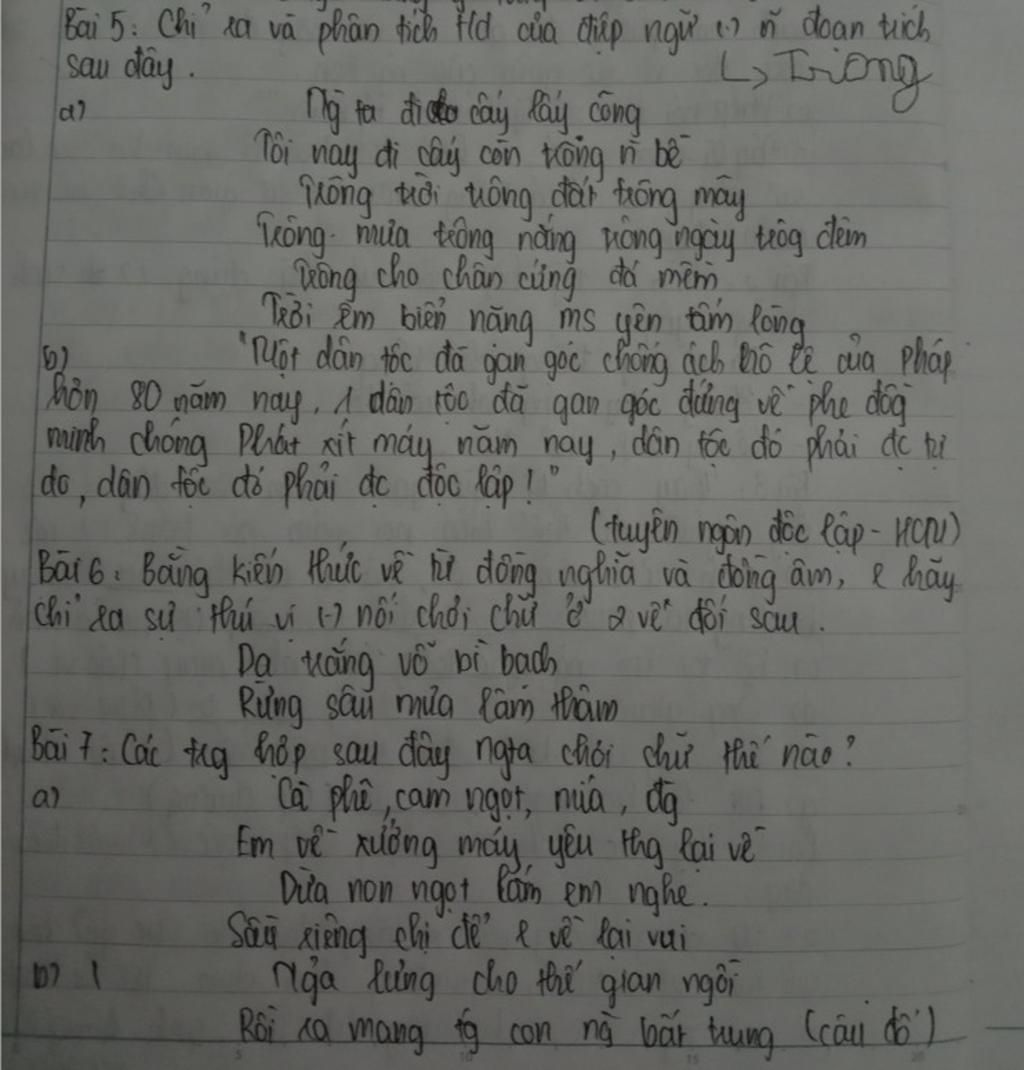 Bài 5: Chỉ ra và phân tích t/d của điệp ngữ (-) ~ đoạn trích
sau đây. ↳ Trong
a) Ng ta đi cấy lấy công
Tôi nay đi cấy còn trông n bề
Trông trời trông đất trông mây
Trông mưa trông nắng trông ngày trôg đêm
Trông cho chân cứng đá mềm
Trời êm biển nặng ms yên tấm lòng
b) "Một dân tộc đã gan góc chống ách nô lệ của Pháp
hơn 80 năm nay, 1 dân tộc đã gan góc đứng về phe đồg
minh chống Phát xít máy năm nay, dân tộc đó phải đc tự
do, dân tộc đó phải đc độc lập!"
(tuyên ngôn độc lập - HCM)
Bài 6: Bằng kiến thức về từ đồng nghĩa và đồng âm, e hãy
chỉ ra sự thú vị (-) nối chơi chữ ở 2 vế đối sau.
Da trắng vỗ bì bạch
Rừng sâu mưa lâm thâm
Bài 7: Các trg hợp sau đây ngta chơi chữ thế nào?
a) Cà phê, cam ngọt, mía, đg
Em về xưởng máy yêu thg lại về
Dừa non ngọt lắm em nghe.
Sầu riêng chị để e về lại vui
b) 1 Ngả lưng cho thế gian ngồi
Rồi ra mang tg con ng bất trung (câu đố)